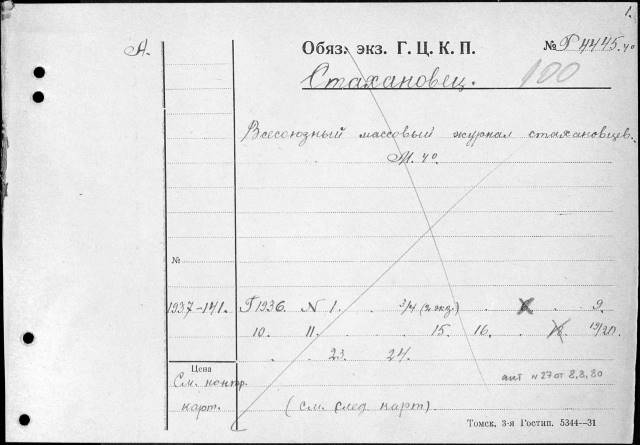 1.
А. Обяз. экз. Г. Ц. К. П. № Г 4445. 4о
Стахановец. 100
Всесоюзный массовый журнал стахановцев.
М. 4о.
№
1937-141. Г 1936. N 1. . 3/4 (2 экз.) . 6 . 9.
10. 11. . . 15. 16. . 18. 19/20.
. . 23. 24.
Цена
См. контр. акт N 27 от 8.8.80
карт. (см. след. карт).
Томск, 3-я Гостип. 5344—31